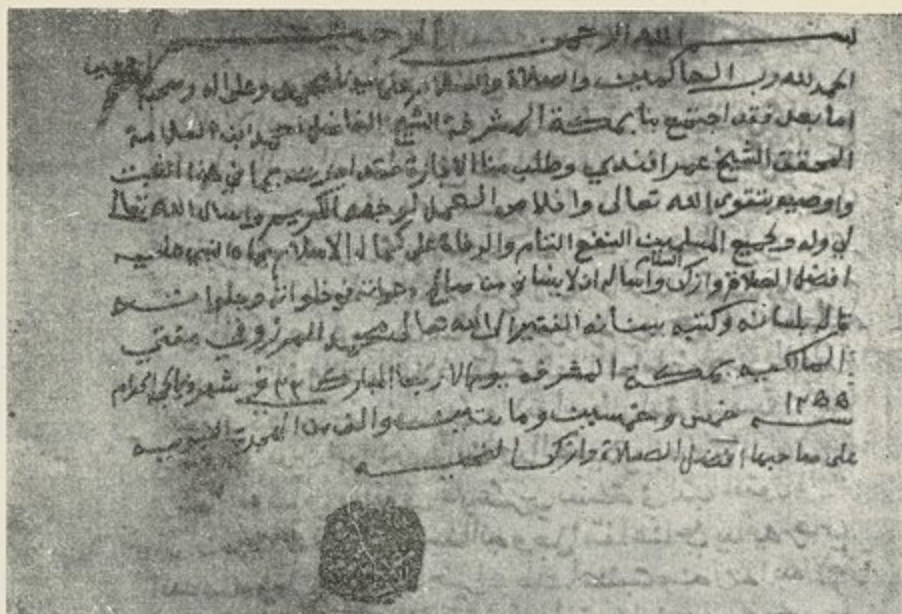 بسم الله الرحمن الرحيم
الحمد لله رب العالمين والصلاة والسلام على سيدنا محمد وعلى اله وصحبه اجمعين
اما بعد فقد اجتمع بنا بمكة المشرفة الشيخ الفاضل احمد ابن العلامة
المحقق الشيخ عمر افندي وطلب منا الاجازة فقد اجزته بما في هذا الثبت
واوصيه بتقوى الله تعالى واخلاص العمل لوجهه الكريم واسال الله تعالى
لي وله ولجميع المسلمين النفع التام والوفاة على كمال الاسلام بجاه النبي عليه
افضل الصلاة وازكى السلام واساله ان لا ينساني من صالح دعواته في خلواته وجلواته
قاله بلسانه وكتبه ببنانه الفقير الى الله تعالى محمد المرزوقي مفتي
المالكية بمكة المشرفة يوم الاربعا المبارك ٢٣ في شهر ذي الحجة الحرام
سنة ١٢٥٥ خمس وخمسين ومايتين والف من الهجرة النبوية
على صاحبها افضل الصلاة وازكى التحية